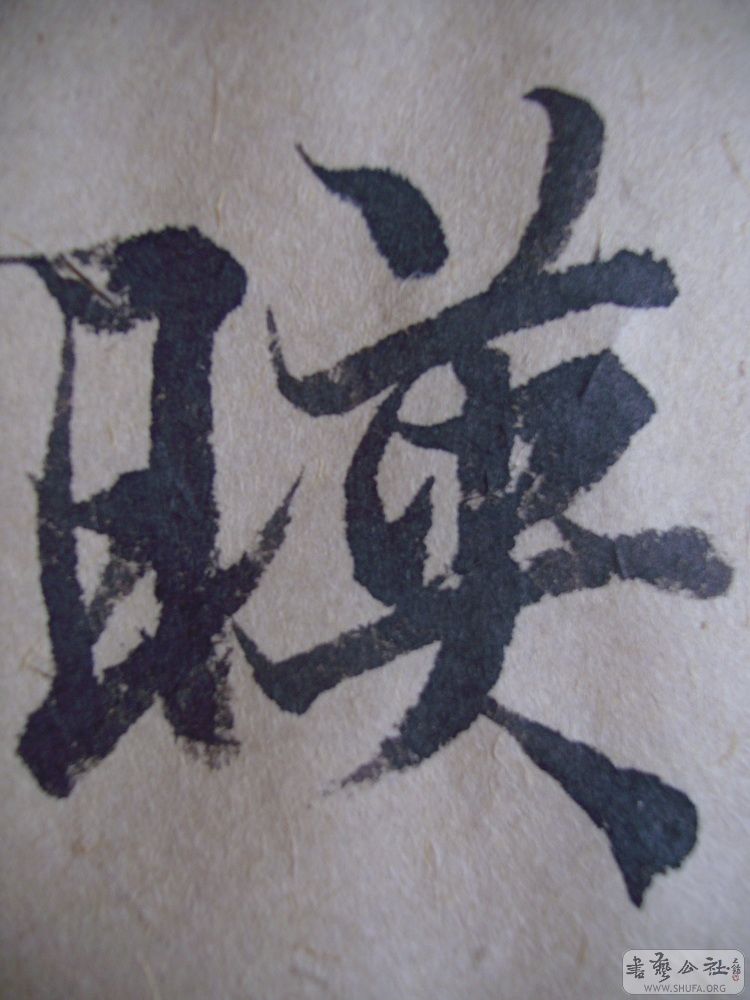 暎
書藝公社
WWW.SHUFA.ORG